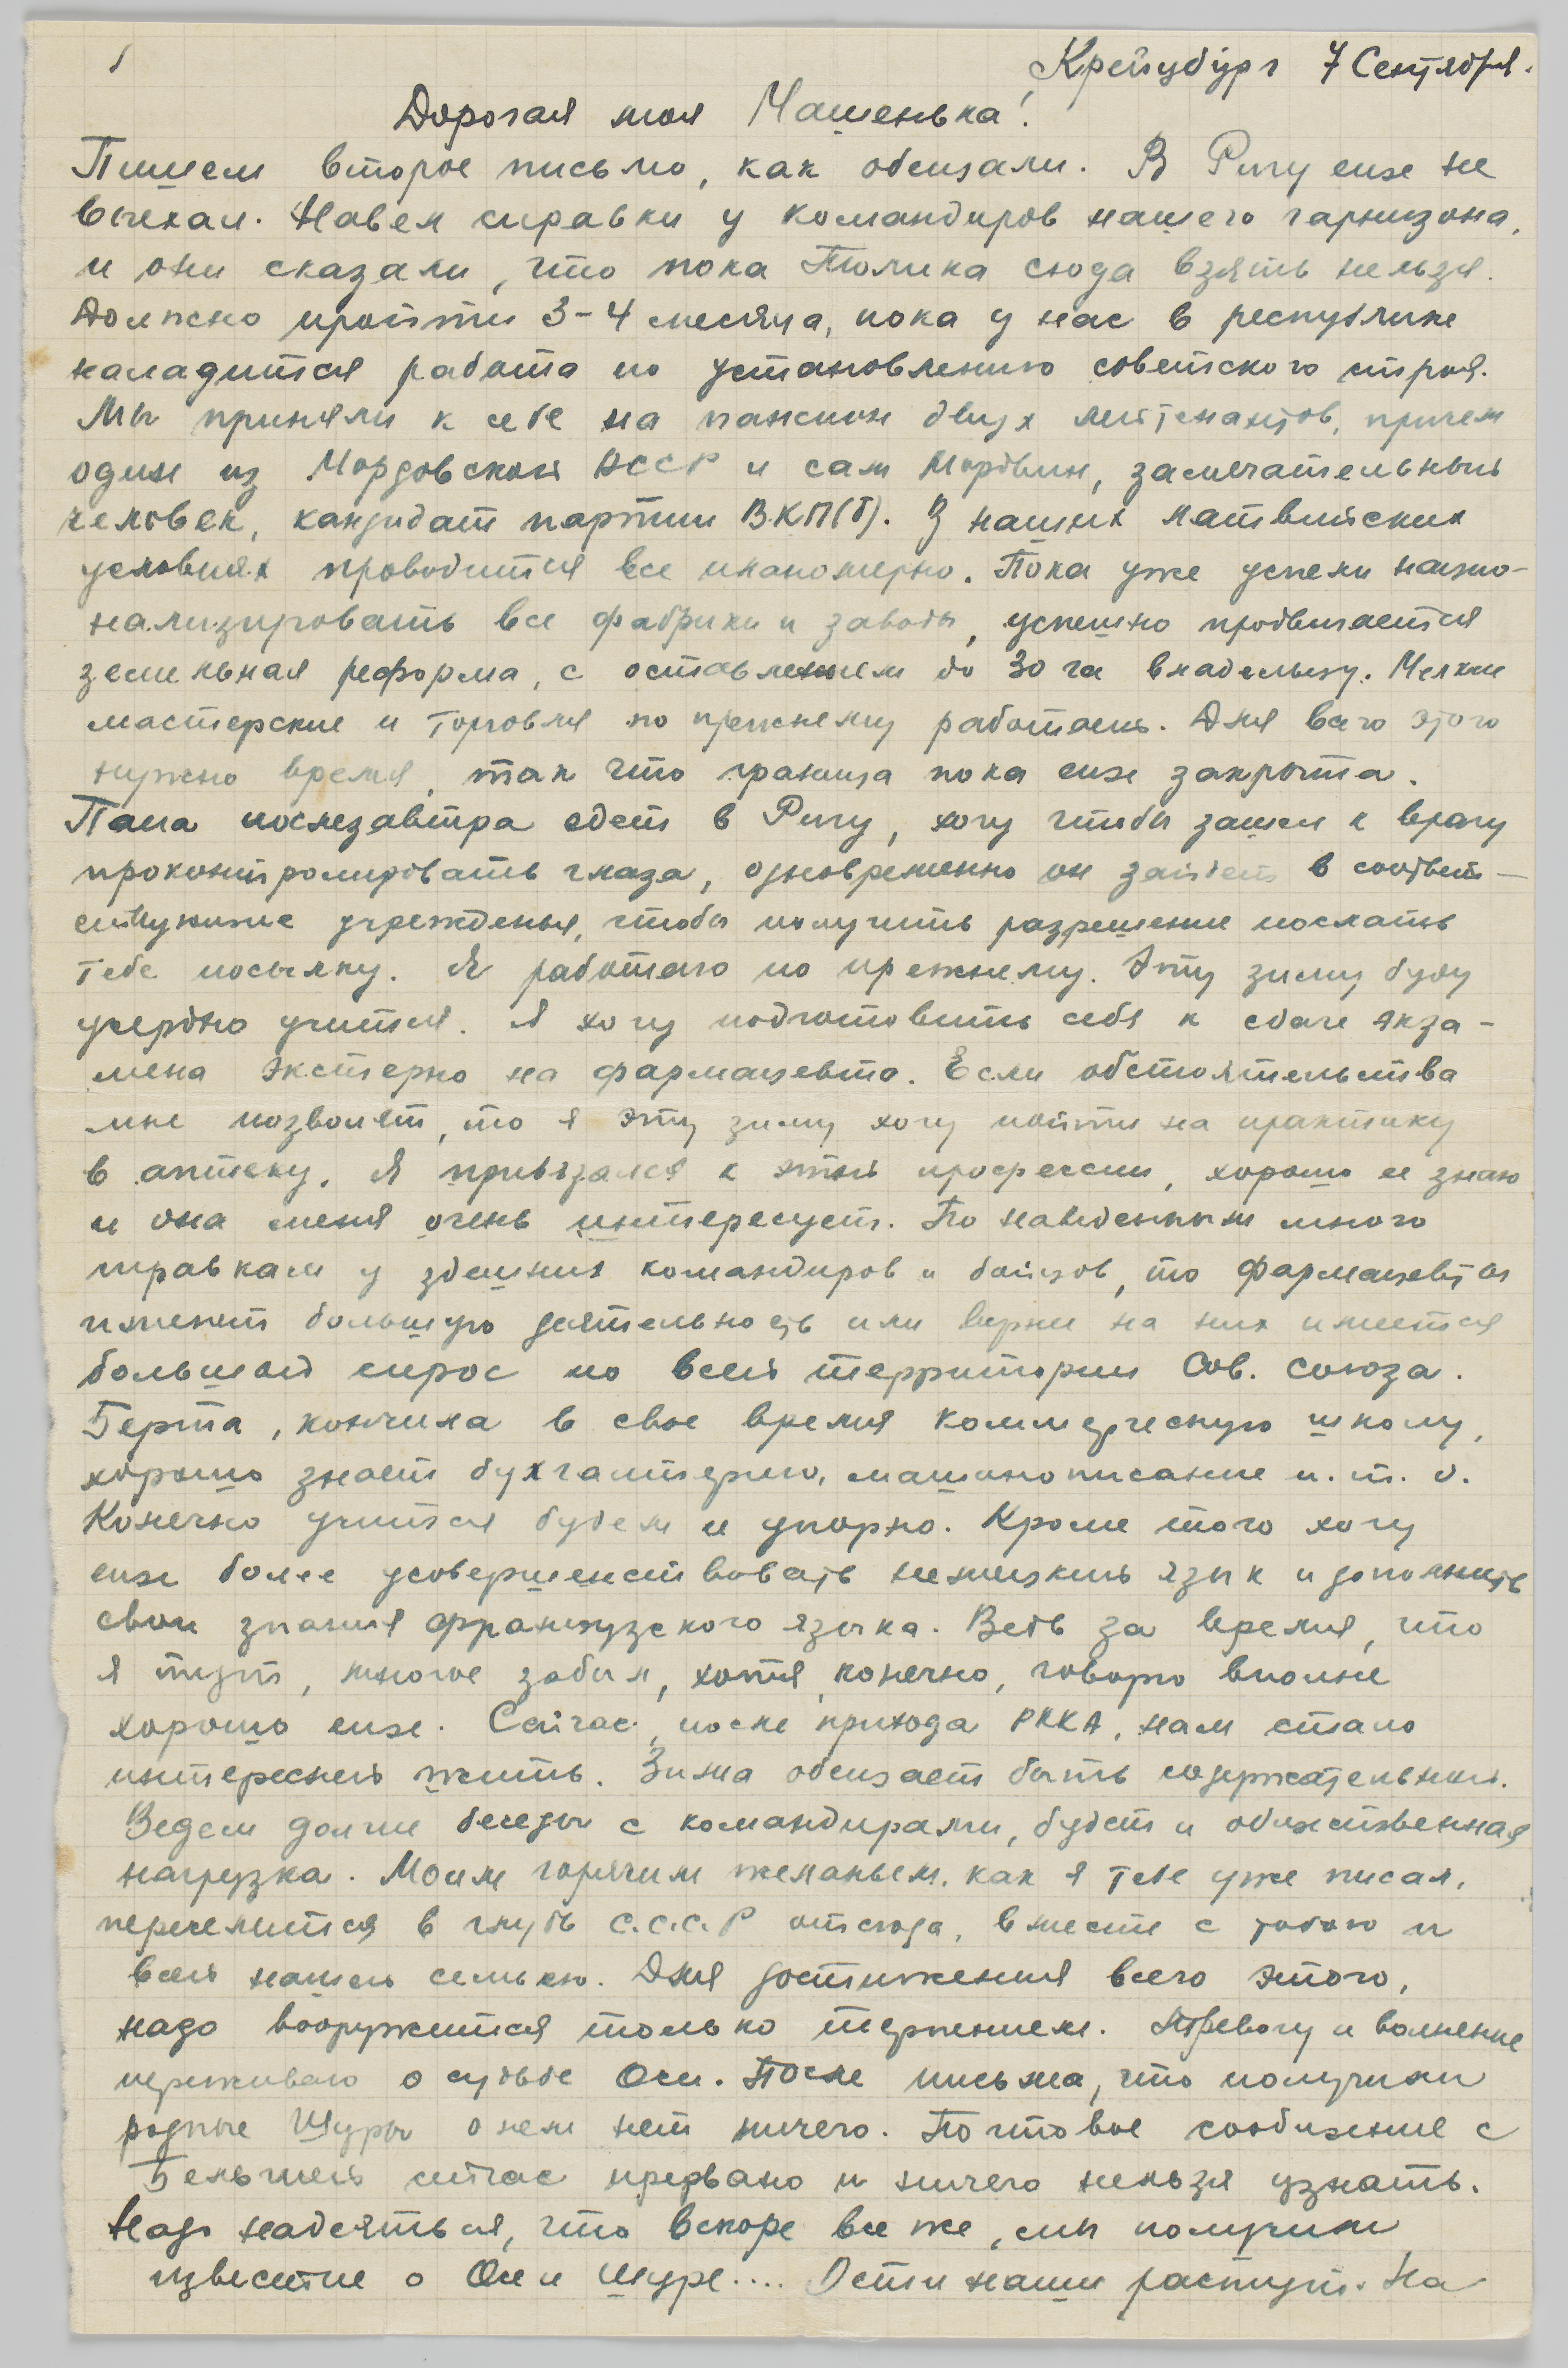 1
Крейцбург 7 Сентября.
Дорогая моя Машенька!
Пишем второе письмо, как обещали. В Ригу еще не
выехал. Навел справки у командиров нашего гарнизона,
и они сказали, что пока Толика сюда взять нельзя.
Должно пройти 3-4 месяца, пока у нас в республике
наладится работа по установлению советского строя.
Мы приняли к себе на пансион двух лейтенантов, причем
один из Мордовской АССР и сам Мордвин, замечательный
человек, кандидат партии ВКП(б). В наших латвийских
условиях проводится все планомерно. Пока уже успели нацио-
нализировать все фабрики и заводы, успешно продвигается
земельная реформа, с оставлением до 30 га владельцу. Мелкие
мастерские и торговля по прежнему работают. Для всего этого
нужно время, так что граница пока еще закрыта.
Папа послезавтра едет в Ригу, хочу чтобы зашел к врачу
проконтролировать глаза, одновременно он зайдет в соответ-
ствующие учрежденья, чтобы получить разрешение послать
тебе посылку. Я работаю по прежнему. Эту зиму буду
усердно учится. Я хочу подготовить себя к сдаче экза-
мена экстерно на фармацевта. Если обстоятельства
мне позволят, то я эту зиму хочу пойти на практику
в аптеку. Я привязался к этой профессии, хорошо ее знаю
и она меня очень интересует. По наведенным много
справкам у здешних командиров и бойцов, то фармацевты
имеют большую деятельность или вернее на них имеется
большой спрос по всей территории Сов. Союза.
Берта, кончила в свое время коммерческую школу,
хорошо знает бухгалтерию, машинописание и. т. д.
Конечно учится будем и упорно. Кроме того хочу
еще более усовершенствовать немецкий язык и дополнить
свои знания французского языка. Ведь за время, что
я тут, многое забыл, хотя, конечно, говорю вполне
хорошо еще. Сейчас, после прихода РККА, нам стало
интересней жить. Зима обещает быть содержательной.
Ведем долгие беседы с командирами, будет и общественная
нагрузка. Моим горячим желаньем, как я тебе уже писал,
переселится в глубь С.С.С.Р отсюда, вместе с тобою и
всей нашей семьею. Для достижения всего этого,
надо вооружится только терпением. Тревогу и волнение
переживаю о судьбе Оси. После письма, что получили
родные Шуры о нем нет ничего. Почтовое сообщение с
Бельгией сейчас прервано и ничего нельзя узнать.
Надо надеяться, что вскоре все же, мы получим
известие о Осе и Шуре.... Дети наши растут. На